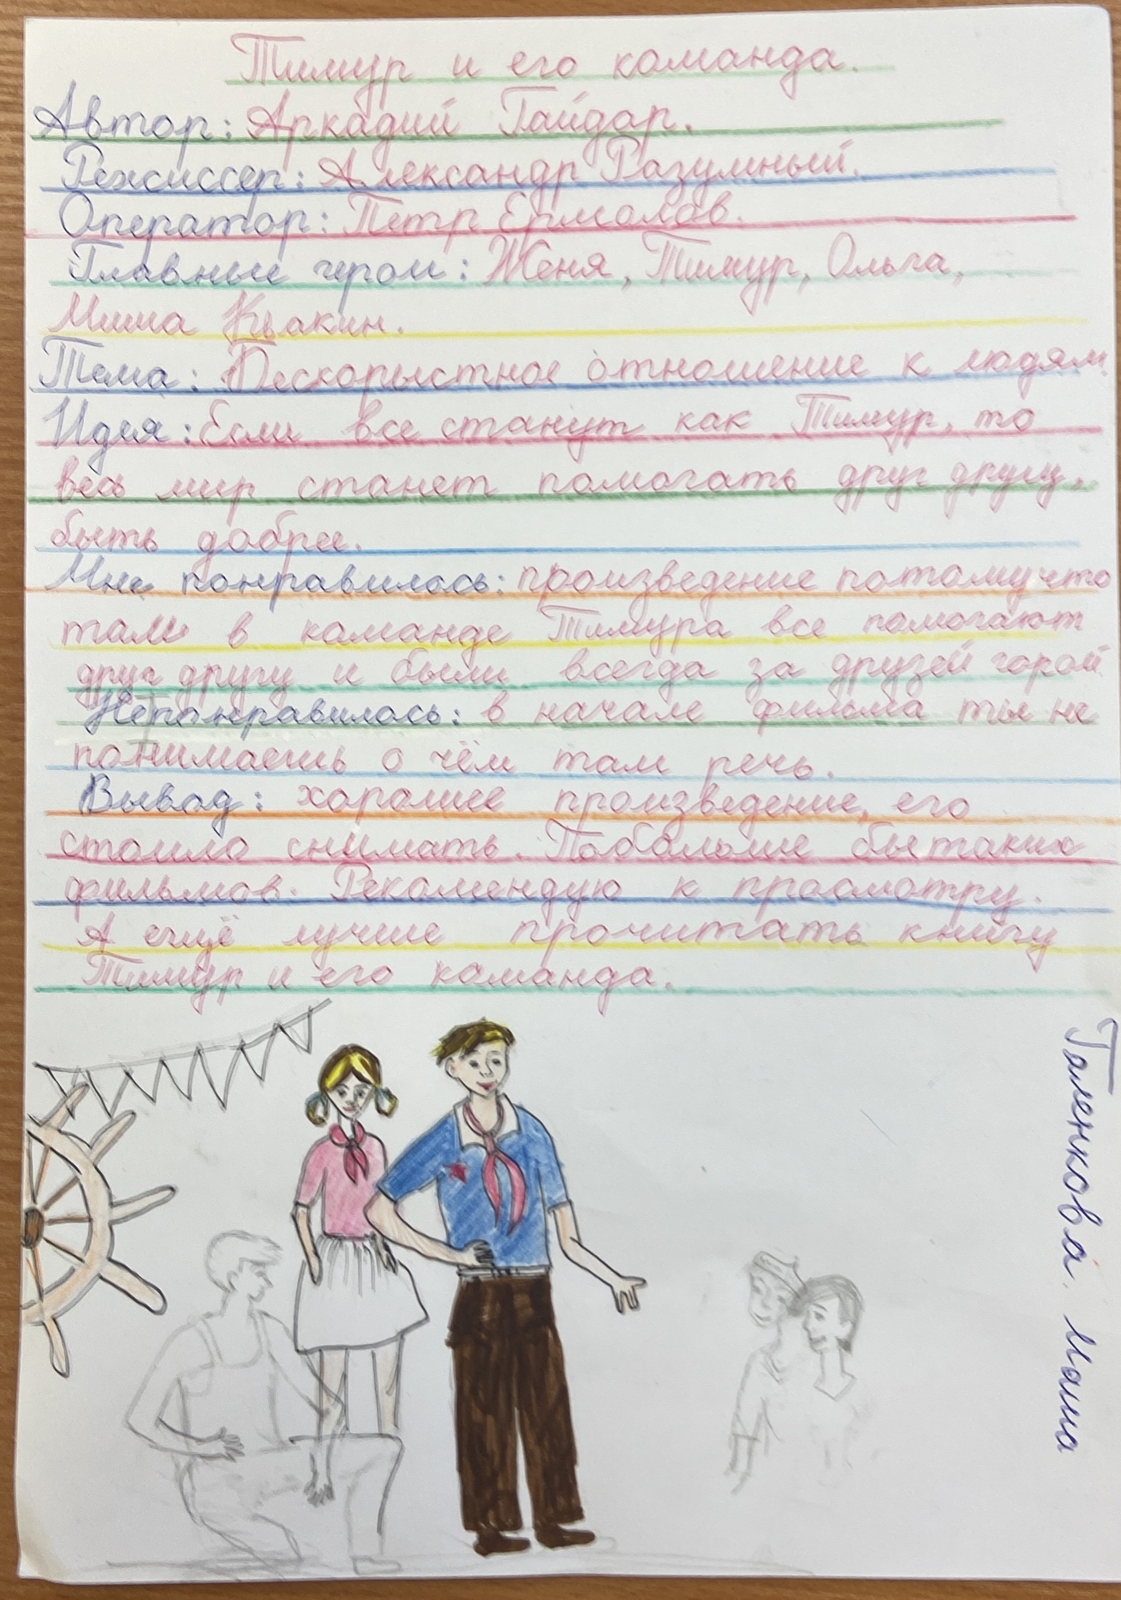 Тимур и его команда.
Автор: Аркадий Гайдар.
Режиссер: Александр Разумный.
Оператор: Петр Ермолов.
Главные герои: Женя, Тимур, Ольга,
Миша Квакин.
Тема: Бескорыстное отношение к людям.
Идея: Если все станут как Тимур, то
весь мир станет помогать друг другу,
быть добрее.
Мне понравилось: произведение потому что
там в команде Тимура все помогают
друг другу и были всегда за друзей горой
Непонравилось: в начале фильма ты не
понимаешь о чём там речь.
Вывод: хорошее произведение, его
стоило снимать. Побольше бы таких
фильмов. Рекомендую к просмотру.
А ещё лучше прочитать книгу
Тимур и его команда.
Галенкова Маша